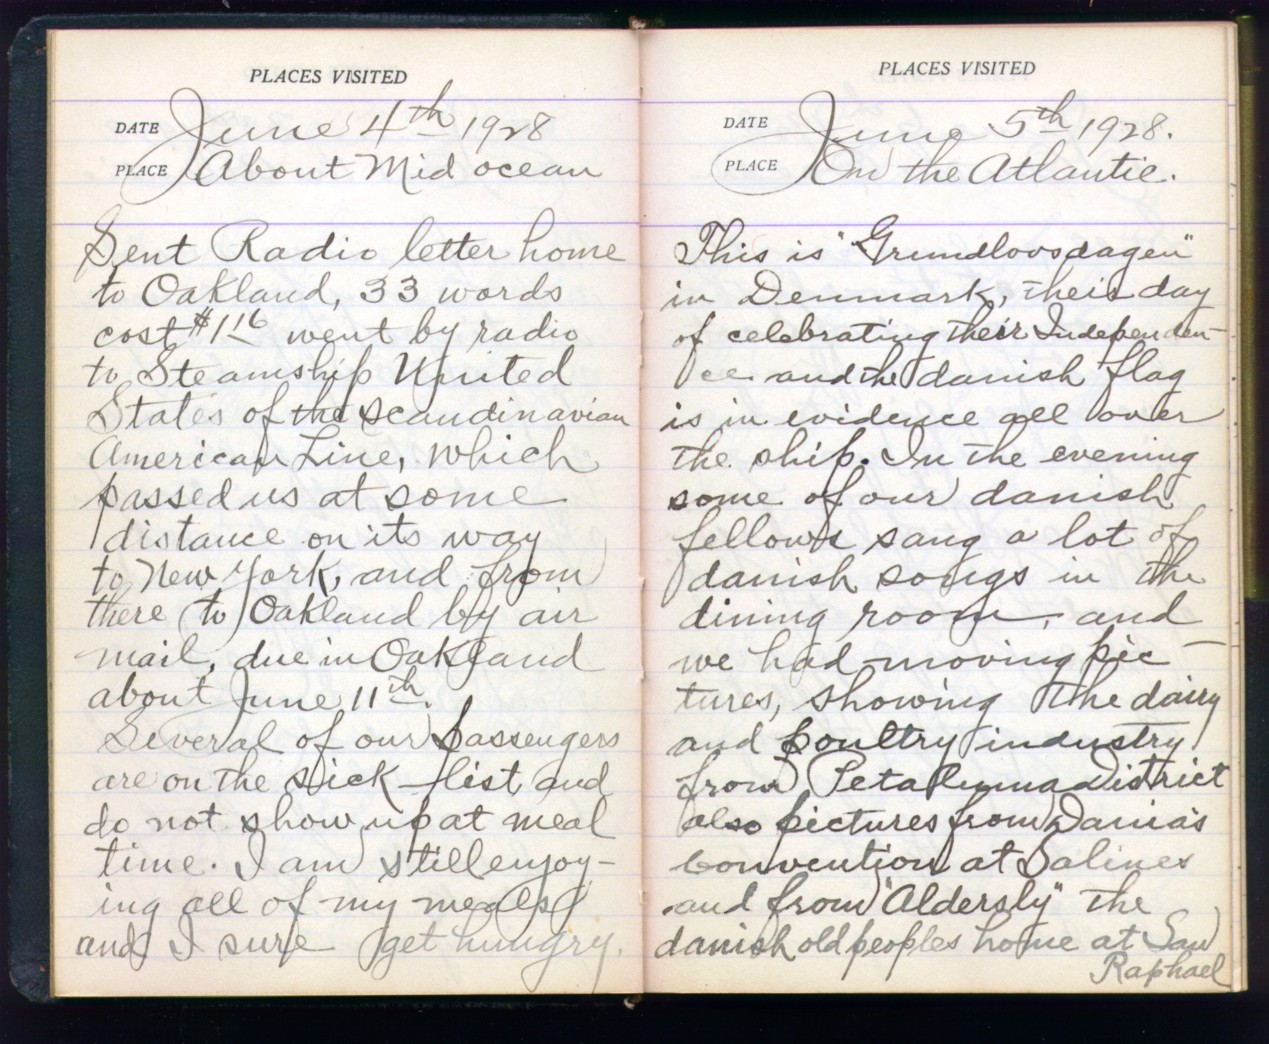 PLACES VISITED
DATE June 4th 1928
PLACE About Mid ocean
Sent Radio letter home
to Oakland, 33 words
cost $1 16 went by radio
to Steamship United
States of the Scandinavian
American Line, which
passed us at some
distance on its way
to New York, and from
there to Oakland by air
mail, due in Oakland
about June 11th.
Several of our passengers
are on the sick-list and
do not show up at meal
time. I am still enjoy-
ing all of my meals
and I sure get hungry.
PLACES VISITED
DATE June 5th 1928.
PLACE On the Atlantic.
This is "Grundlovsdagen"
in Denmark, their day
of celebrating their Independen-
ce and the danish flag
is in evidence all over
the ship. In the evening
some of our danish
fellows sang a lot of
danish songs in the
dining room, and
we had moving pic-
tures, showing the dairy
and poultry industry
from Petaluma District
also pictures from Dania's
convention at Salines
and from "Aldersly" the
danish old peoples home at San
Raphael